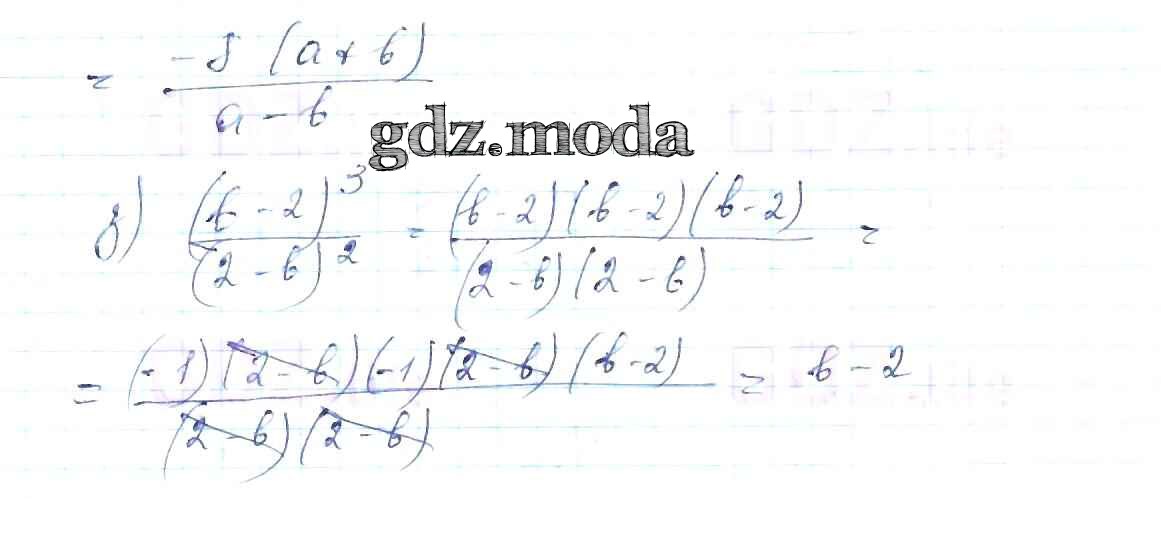 = -8 (a + b) / a - b
gdz.moda
з) (b - 2)^3 / (2 - b)^2 = (b - 2)(b - 2)(b - 2) / (2 - b)(2 - b) =
= (-1)(2 - b)(-1)(2 - b)(b - 2) / (2 - b)(2 - b) = b - 2